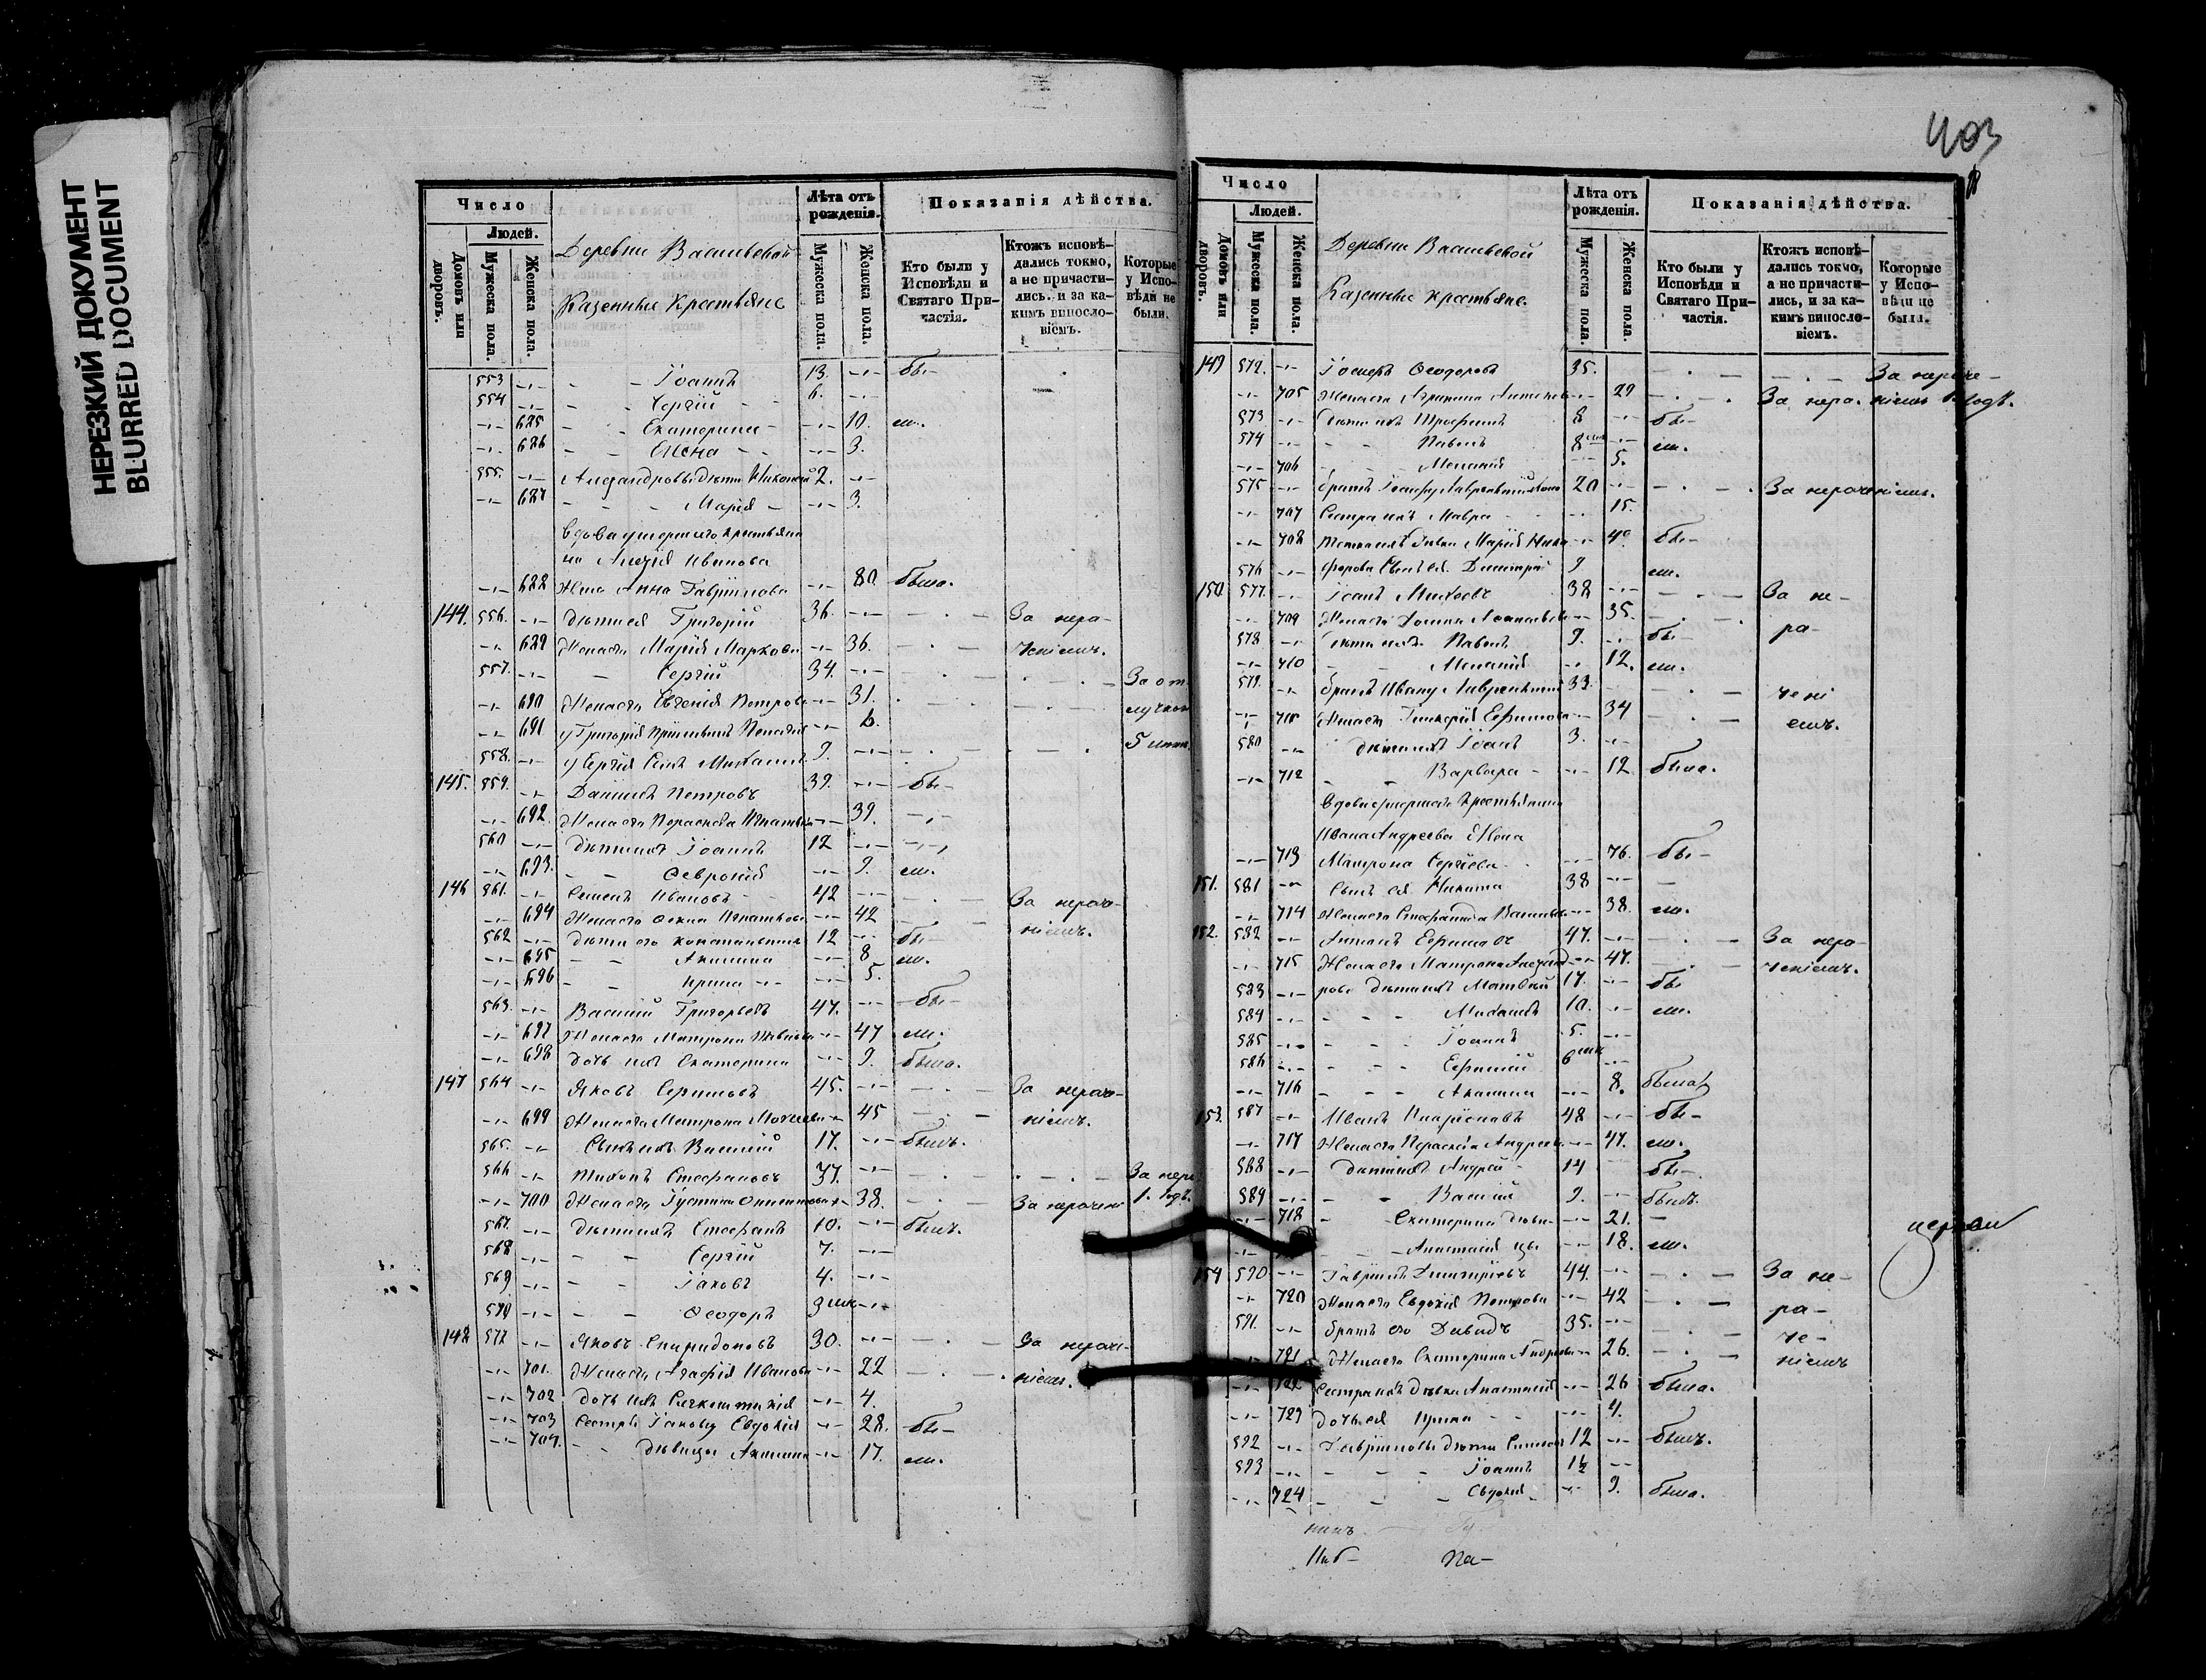 НЕРЕЗКИЙ ДОКУМЕНТ
BLURRED DOCUMENT
403
Число
Людей.
Домовъ или дворовъ.
Мужеска пола.
Женска пола.
Деревни Васильевской
Казенные крестьяне
Лѣта отъ рожденія.
Мужеска пола.
Женска пола.
Показанія дѣйства.
Кто были у Исповѣди и Святаго Причастія.
Ктожъ исповѣдались токмо, а не причастились, и за какимъ винословіемъ.
Которые у Исповѣди не были.
553 Іоаннъ 13. бы-
554 Сергій 6.
685 Екатерина 10. ли.
686 Елена 3.
555. Александровы дѣти Николай 2.
687 Марія 3.
Вдова умершаго крестьяни
на Алексія Иванова
688 Жена Анна Гавриилова 80. была.
144. 556. Дѣти ея Григорій 36. За нера-
689 Жена его Марія Маркова 36. ченіемъ.
557. Сергій 34. За от-
690 Жена его Евгенія Петрова 31. лучкою
691 у Григорія 6. 5 лѣтъ.
558. у Сергія Сынъ Михаилъ 9.
145. 559. Даніилъ Петровъ 39. бы-
692. Жена его Параскева Игнатьева 39.
560 Дѣти ихъ Іоаннъ 12
693. Февронія 9. ли.
146 561. Семенъ Ивановъ 42 За нераче-
694 Жена его Игнатьева 42 ніемъ.
562 Дѣти его Константинъ 12 бы-
695 Акилина 8 ли.
696 Ирина 5.
563. Василій Григорьевъ 47. бы-
697 Жена его Матрона 47 ли.
698 Дочь ихъ Екатерина 9. была.
147 564 Яковъ 45. За нераче-
699 Жена его Матрона 45 ніемъ.
565. Сынъ ихъ Василій 17. былъ.
566 Тихонъ Стефановъ 37. За нера
700 Жена его Іустина 38. За нерачені 1. годъ.
567. Дѣти ихъ Стефанъ 10. былъ.
568 Сергій 7.
569 Іаковъ 4.
570 Ѳеодоръ 9 мѣс
148 571 Яковъ Спиридоновъ 30. За нераче-
701. Жена его Агафія Иванова 22 ніемъ.
702 Дочь ихъ 4.
703 Сестры Іакову Евдокія 28. бы-
704. дѣвицы Акилина 17. ли.
Число
Людей.
Домовъ или дворовъ.
Мужеска пола.
Женска пола.
Деревни Васильевской
Казенные крестьяне.
Лѣта отъ рожденія.
Мужеска пола.
Женска пола.
Показанія дѣйства.
Кто были у Исповѣди и Святаго Причастія.
Ктожъ исповѣдались токмо, а не причастились, и за какимъ винословіемъ.
Которые у Исповѣди не были.
149 572. Іосифъ Ѳеодоровъ 35. За нераче-
705 Жена его Агрипина 29 За нера. ніемъ 1 годъ.
573 Дѣти ихъ Трофимъ 8 бы-
574 Павелъ 8 мѣс ли.
706 Меланія 5.
575 Братъ Іосифу Лаврентій 20 За нераченіемъ.
707 Сестра ихъ Мавра 15.
708 Марія 40 бы-
576 Сынъ ея Димитрій 9 ли.
150 577. Іоаннъ 38 За не-
709 Жена его 35. ра-
578 Дѣти ихъ Павелъ 9. бы-
710 Меланія 12. ли.
579. Братъ Ивану Лаврентій 33. чені
711 Жена его Гликерія Ефимова 34 емъ.
580 Дѣти ихъ Іоаннъ 3.
712 Варвара 12 была.
Вдова умершаго Крестьянина
Ивана Андреева Жена
713 Матрона Сергіева 76. бы-
151. 581 Сынъ ея Никита 38
714 Жена его Стефанида 38. ли.
152. 582 Антонъ Ефимовъ 47. За нера-
715 Жена его Матрона Александ 47. ченіемъ.
583 рова Дѣти ихъ Матвѣй 17. бы
584 Михаилъ 10. ли.
585 Іоаннъ 5.
586 Ефимій 6 мѣс
716 Акилина 8. была
153. 587 Иванъ 48 бы-
717 Жена его Параскева Андреева 47. ли.
588 Дѣти ихъ Андрей 14 бы-
589 Василій 9. былъ.
718 Екатерина дѣви- 21.
Анастасія цы 18. ли.
154 590 Гавріилъ Димитріевъ 44. За не-
720 Жена его Евдокія Петрова 42 ра-
591. Братъ его Давидъ 35. че-
721 Жена его Екатерина Андреева 26. ніемъ
722 Сестра ихъ дѣвка Анастасія 26 была.
723 Дочь ея Ирина 4.
592 Гавріиловы дѣти Симеонъ 12 былъ.
593 Іоаннъ 1½
724 Евдокія 9. была.